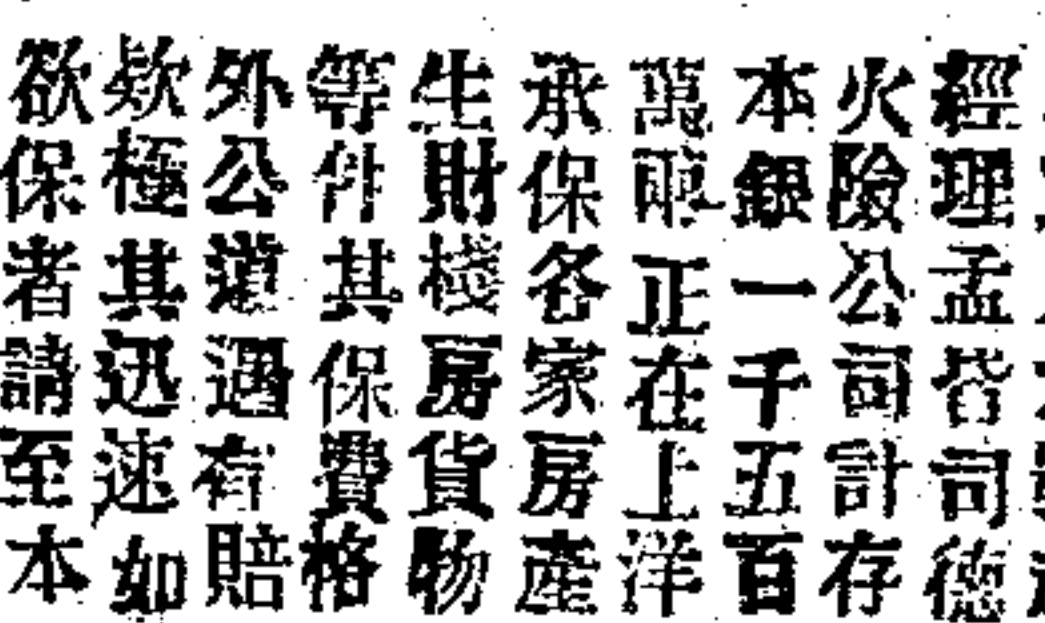 經理孟皆司德
火險公司計存
本銀一千五百
萬両正在上洋
承保各家房產
生財棧房貨物
等件其保費格
外公道遇有賠
欵極其迅速如
欲保者請至本